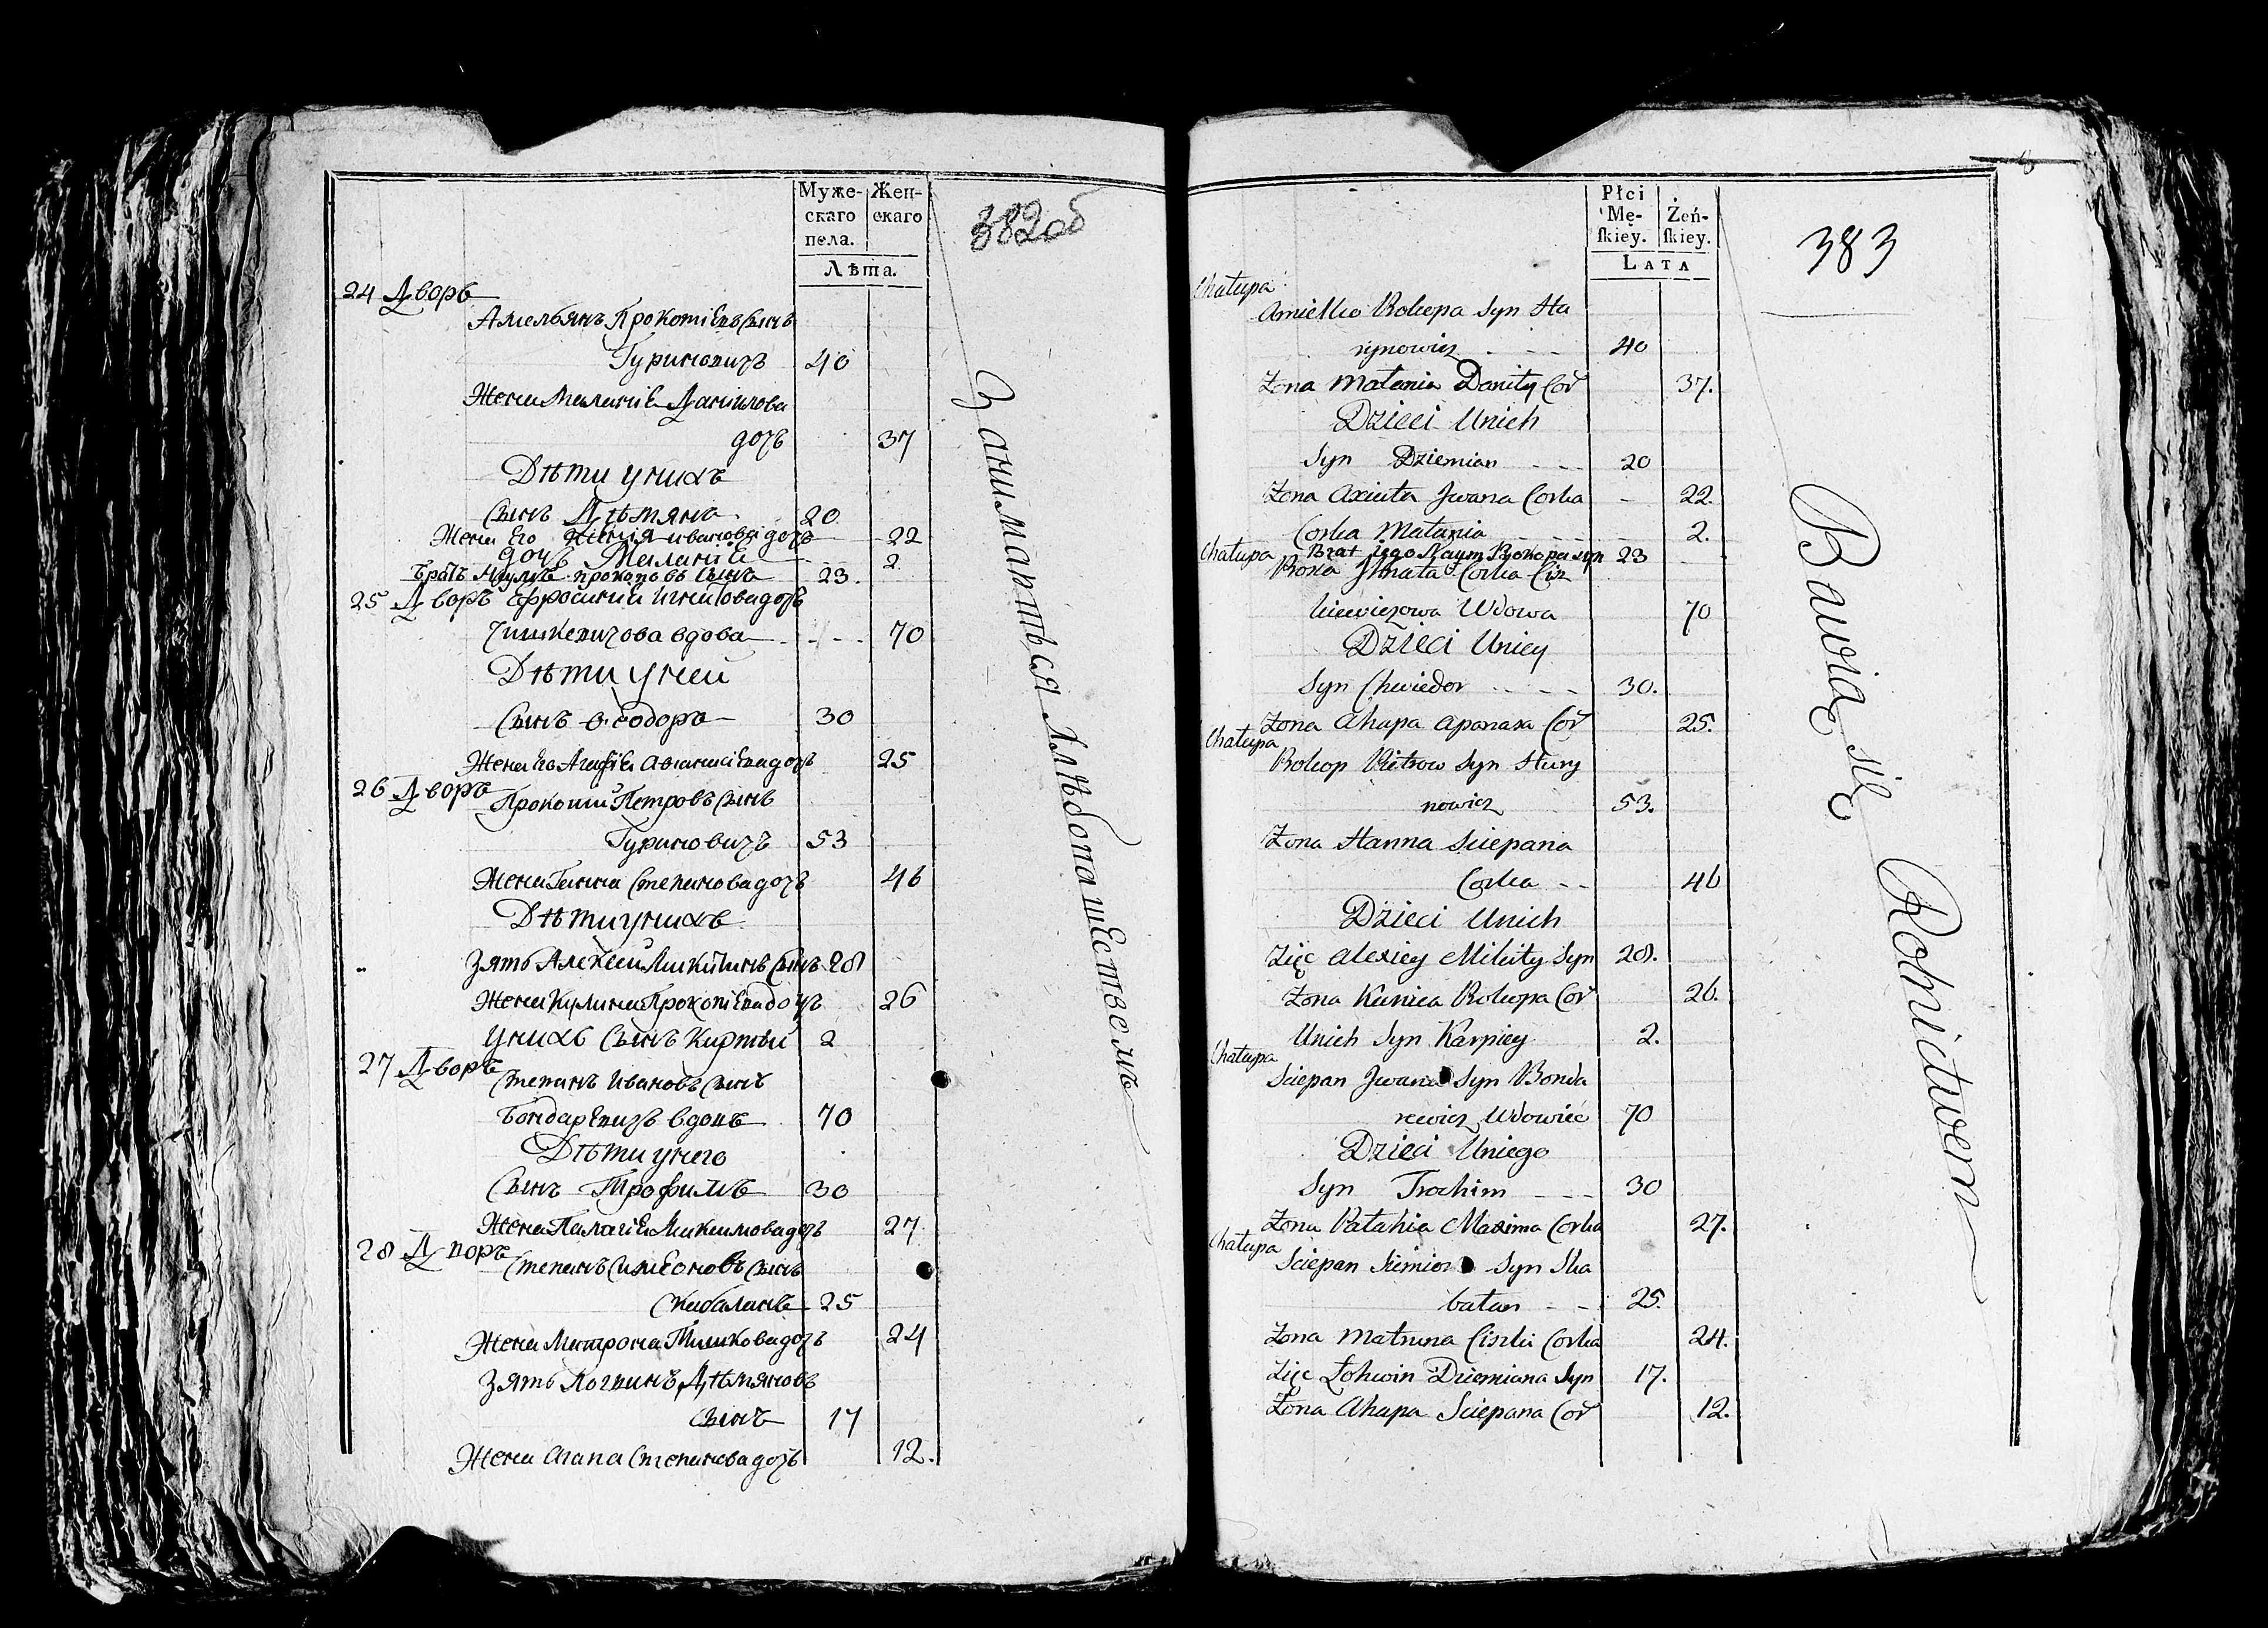 Муже-
скаго
пола.
Жен-
скаго
Лѣта.
382об
24 Дворъ
Амельянъ Прокопіевъ Сынъ
Гуриновичъ 40
Жена Меланіе Даніилова
дочь 37
Дѣти у нихъ
Сынъ Дѣмянъ 20
Жена Его Ксенія Иванова дочь 22
дочь Меланіе 2
Братъ Наумъ Прокоповъ Сынъ 23.
25 Дворъ Ефросинія Игнатова дочь
Чишкевичова вдова 70
Дѣти у ней
Сынъ Ѳеодоръ 30
Жена Его Агафіе Афанасіева дочь 25
26 Дворъ
Прокопій Петровъ Сынъ
Гуриновичъ 53
Жена Ганна Степанова дочь 46
Дѣти у нихъ
Зять Алексѣй Микитинъ Сынъ 28
Жена Кулина Прокопіева дочь 26
У нихъ Сынъ Карпѣй 2
27 Дворъ
Степанъ Ивановъ Сынъ
Бондаревичъ вдовъ 70
Дѣти у него
Сынъ Трофимъ 30
Жена Палагіе Максимова дочь 27
28 Дворъ
Степанъ Симеоновъ Сынъ
Скабаланъ 25
Жена Матрона Тишкова дочь 24
Зять Логвинъ Дѣмяновъ
Сынъ 17
Жена Агапа Степанова дочь 12.
Заниматься Хлѣбопашествемъ
Płci
Mę-
skiey.
Żeń-
skiey.
LATA
383
Chałupa
Amielko Prokopa Syn Hu
rynowicz 40
Żona Małania Daniły Cor 37.
Dzieci Unich
Syn Dziemian 20
Żona Axiuta Jwana Corka 22.
Corka Małania 2.
Brat jego Naum Prokopa syn 23
Chałupa
Jhnata Corka Cisz
kiewiczowa Wdowa 70
Dzieci Uniey
Syn Chwiedor 30.
Żona Ahapa Apanasa Cor 25.
Chałupa
Prokop Pietrow Syn Hury
nowicz 53.
Żona Hanna Sciepana
Corka 46
Dzieci Unich
Zięc Alexiey Mikity Syn 28.
Żona Prokopa Cor 26.
Unich Syn Karpiey 2.
Chałupa
Sciepan Jwana Syn Bonda
rewicz Wdowiec 70
Dzieci Uniego
Syn Trochim 30
Żona Pałahia Maxima Corka 27.
Chałupa
Sciepan Siemion Syn Ska
bałan 25.
Żona Matruna Ciszki Corka 24.
Zięc Łohwin Dziemiana Syn 17.
Żona Ahapa Sciepana Cor 12.
Bawią się Rolnictwem